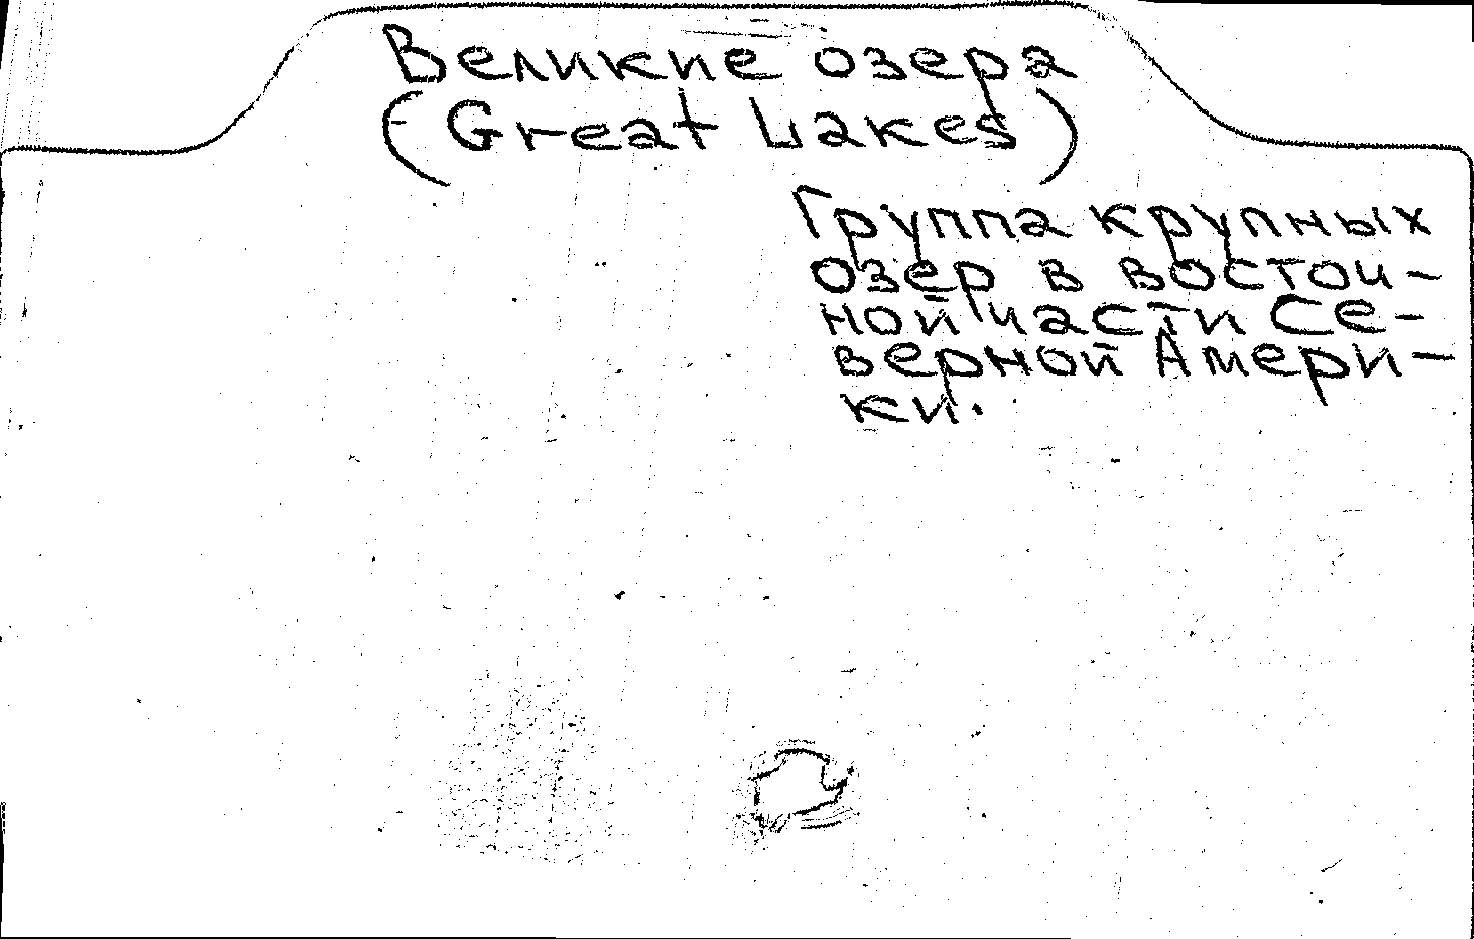 Великие озера
(Great Lakes)
Группа крупных
озер в восточ-
ной части Се-
верной Амери-
ки.